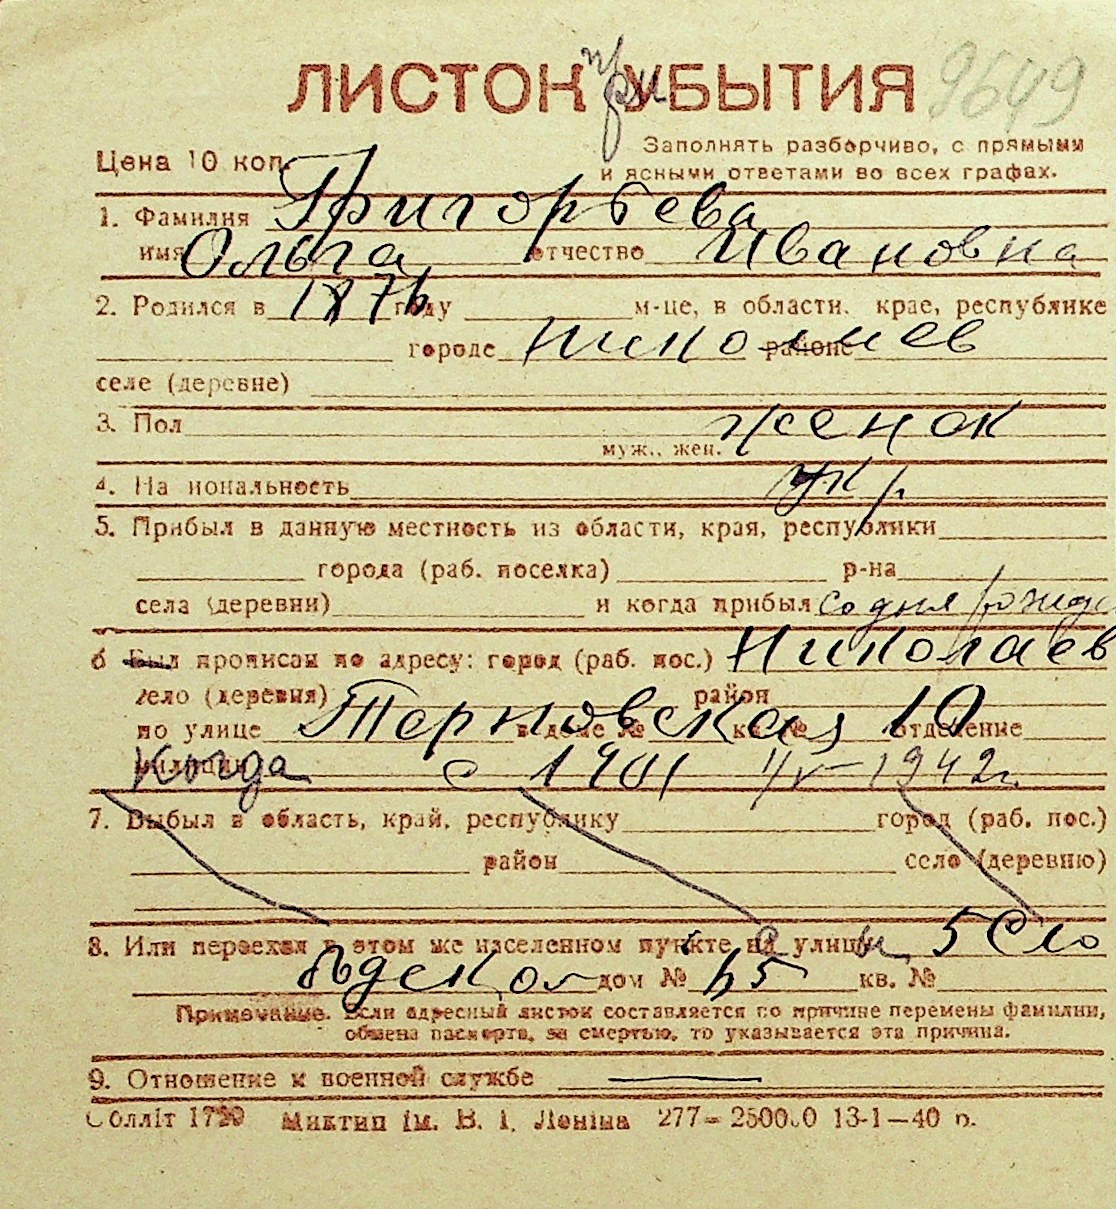 ЛИСТОК при УБЫТИЯ 9649
Цена 10 коп.
Заполнять разборчиво, с прямыми
и ясными ответами во всех графах.
1. Фамилия Григорьева
имя Ольга отчество Ивановна
2. Родился в 1876 году м-це, в области, крае, республике
городе Николаев районе
селе (деревне)
3. Пол женск
муж., жен.
4. На иональность укр.
5. Прибыл в данную местность из области, края, республики
города (раб. поселка) р-на
села (деревни) и когда прибыл со дня рожде
6 Был прописан по адресу: город (раб. пос.) Николаев
село (деревня) район
по улице Терновская 10 в доме № кв. № отделение
Когда с 1901 IV-1942 г.
7. Выбыл в область, край, республику город (раб. пос.)
район село (деревню)
8. Или переехал в этом же населенном пункте на улицы 5 Сло
дом № 65 кв. №
Примечание. Если адресный листок составляется по причине перемены фамилии,
обмена паспорта, за смертью, то указывается эта причина.
9. Отношение к военной службе —
Облліт 1720 Миктип ім. В. І. Леніна 277–2500.0 13-1—40 р.